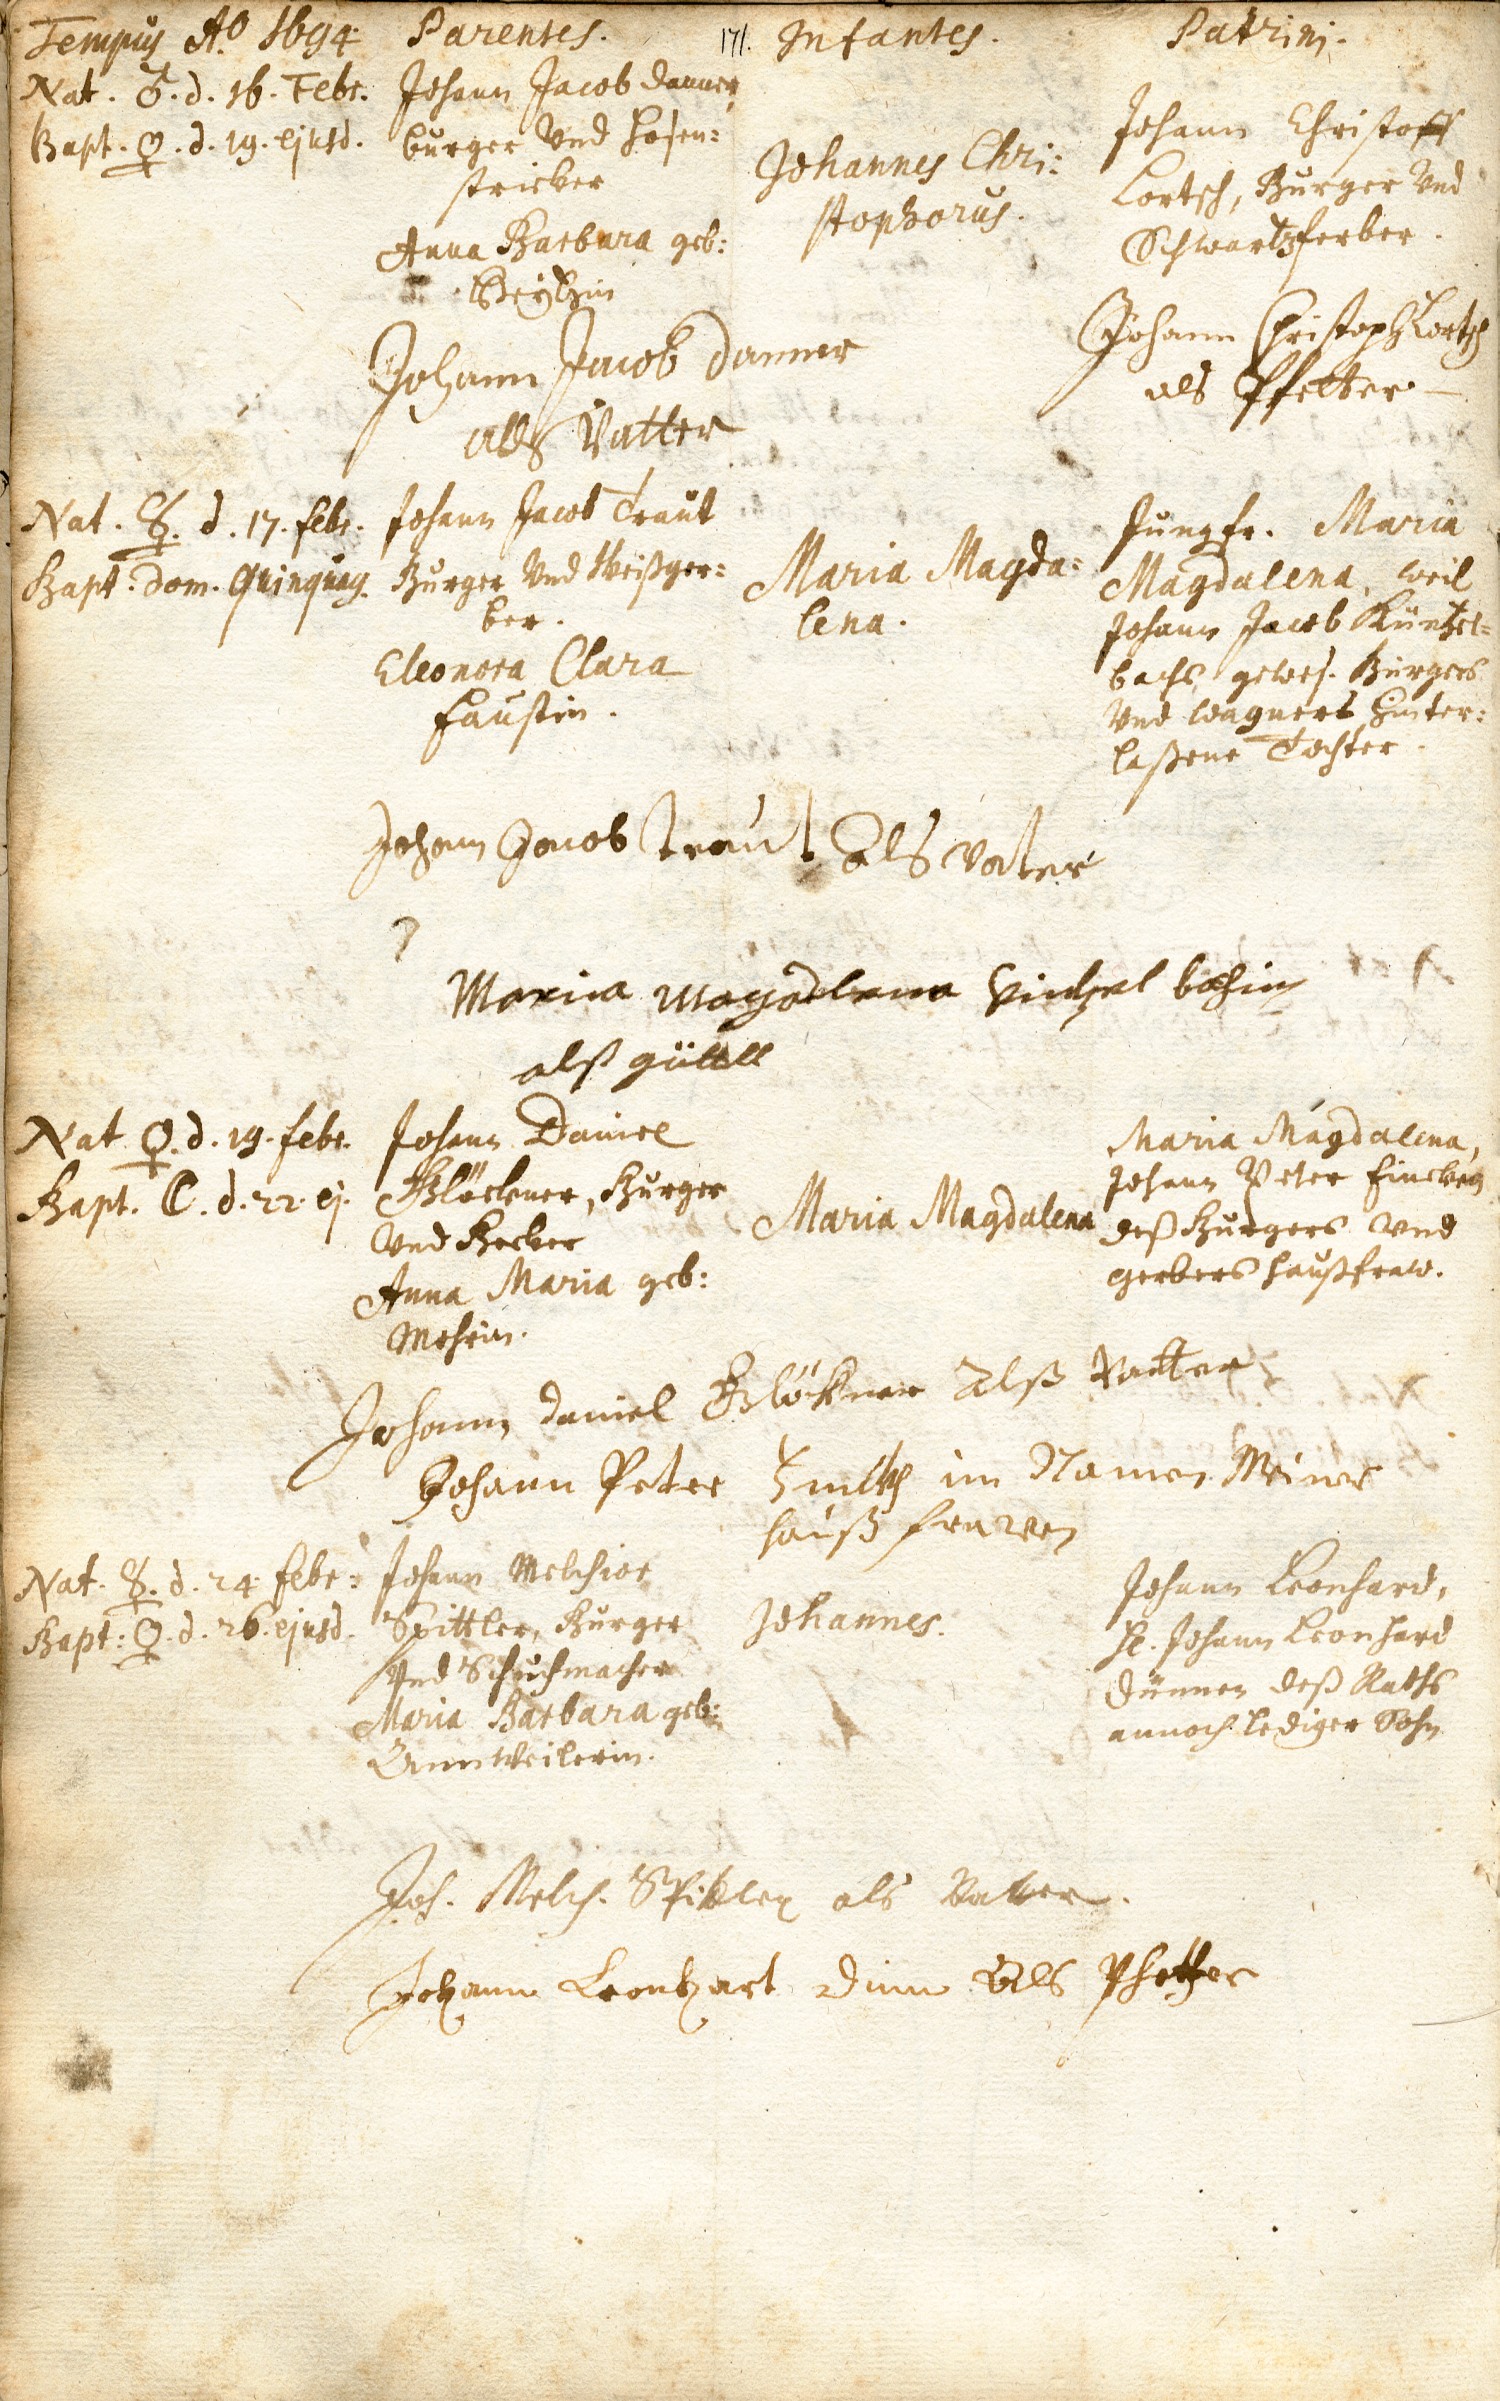 Tempus Aº 1694.
Parentes.
171.
Infantes.
Patrini.
Nat. ♂. d. 16. Febr.
Bapt. ♀. d. 19. ejusd.
Johann Jacob Danner
burger Vnd hosen:
stricker
Anna Barbara geb:
Johannes Chri:
stophorus.
Johann Christoff
Lortsch, Burger Vnd
Schwartzferber.
Johann Jacob Danner
als Vatter
Johann Christoph Lortsch
als Pfetter
Nat. ☿. d. 17. febr.
Bapt. Dom. Quinquag.
Johann Jacob Traut
Burger Vnd Weißger:
ber.
Eleonora Clara
Faustin.
Maria Magda:
lena.
Jungfr. Maria
Magdalena, weil
Johann Jacob Küntzel=
bachs gewes. Burgers
Vnd wagners hinter:
laßene Tochter.
Johann Jacob Traut Als Vater
Maria Magdalena bachin
alß
Nat ♀. d. 19. febr.
Bapt. ☾. d. 22. ej.
Johann Daniel
Blöckner, Burger
Vnd Becker
Anna Maria geb:
Maria Magdalena
Maria Magdalena,
Johann Peter
deß Burgers Vnd
gerbers haußfraw.
Johann Daniel Blöckner Alß Vatter
Johann Peter im Namen Meiner
hauß frawen
Nat. ☿. d. 24. febr:
Bapt: ♀. d. 26. ejusd.
Johann Melchior
Spittler, Burger
Vnd Schuchmacher
Maria Barbara geb:
Annweilerin.
Johannes.
Johann Leonhard,
H. Johann Leonhard
Dünnen deß Raths
annoch lediger Sohn
Joh. Melch. Spittler als Vatter.
Johann Leonhart Dinn Als Phetter